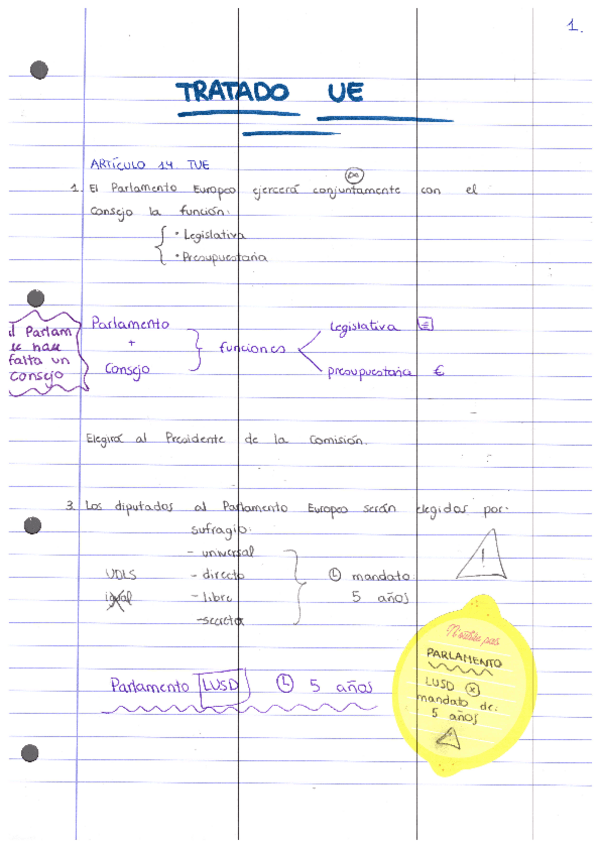 1.
TRATADO UE
ARTÍCULO 14 TUE
1. El Parlamento Europeo ejercerá conjuntamente con el
Consejo la función:
• Legislativa
• Presupuestaria
Parlamento
+
Consejo
funciones
legislativa
presupuestaria €
l Parlam
le hace
falta un
consejo
Elegirá al Presidente de la Comisión.
3. Los diputados al Parlamento Europeo serán elegidos por:
sufragio:
- universal
- directo
- libre
- secreto
UDLS
igual
mandato
5 años
!
Parlamento LUSD 5 años
PARLAMENTO
LUSD
mandato de:
5 años